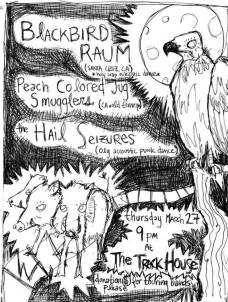 BLACKBIRD
RAUM
(SANTA CRUZ, CA)
Peach Colored Jug
Smugglers
the HAIL
SEIZURES
(Oly acoustic punk dance)
thursday March 27
9 pm
At
The Track House
donation($) for touring bands
Please